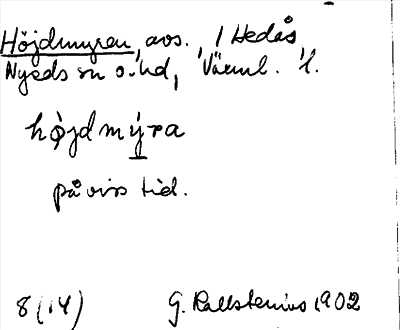 Höjdmyren, avs., 1 Hedås,
Nyeds sn o. hd, Värml. l.
höjdmýra
på viss tid.
8 (14) G. Kallstenius 1902